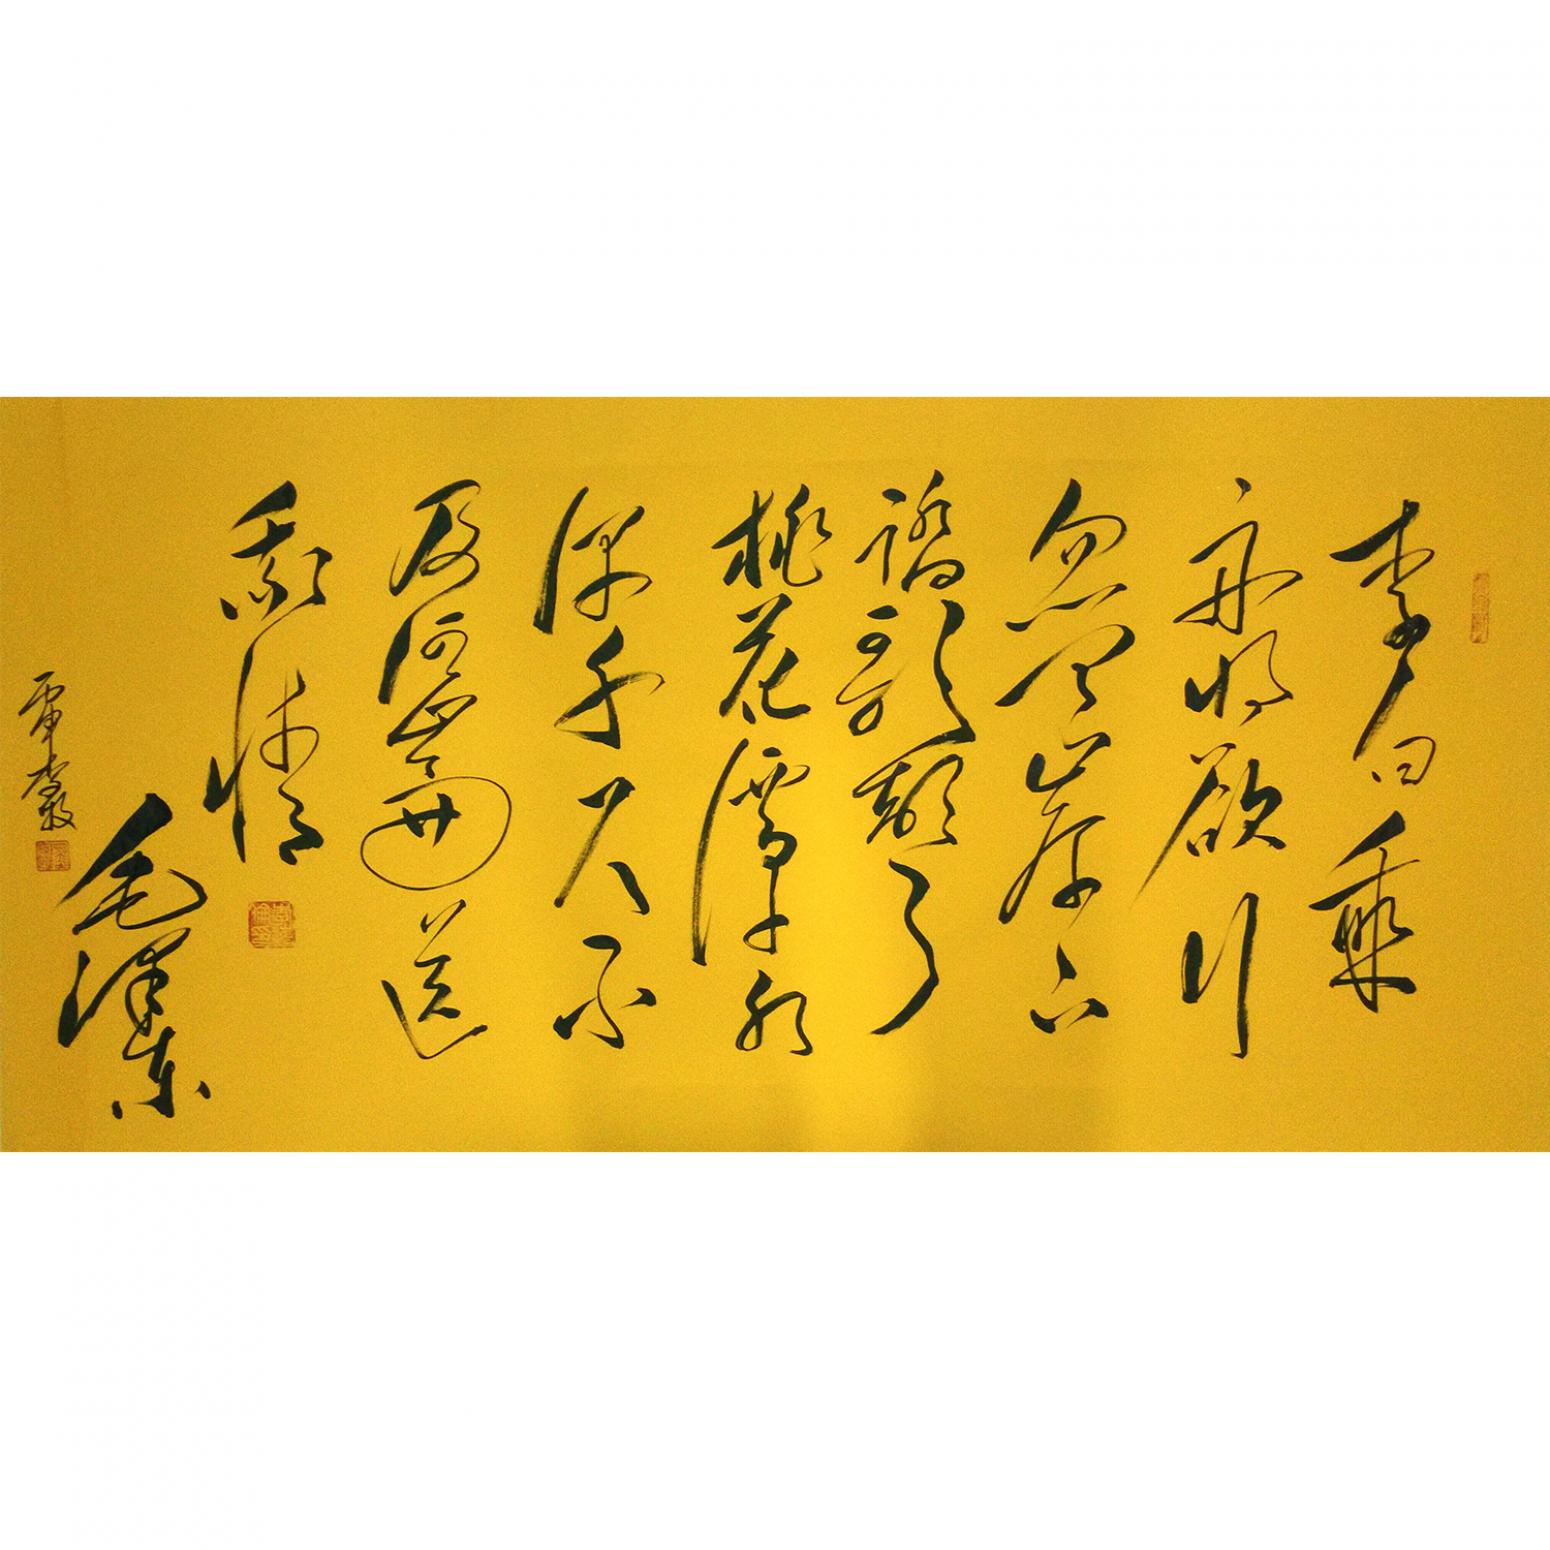 李白乘
舟将欲行
忽闻岸上
踏歌声
桃花潭水
深千尺不
及汪伦送
我情
毛泽东